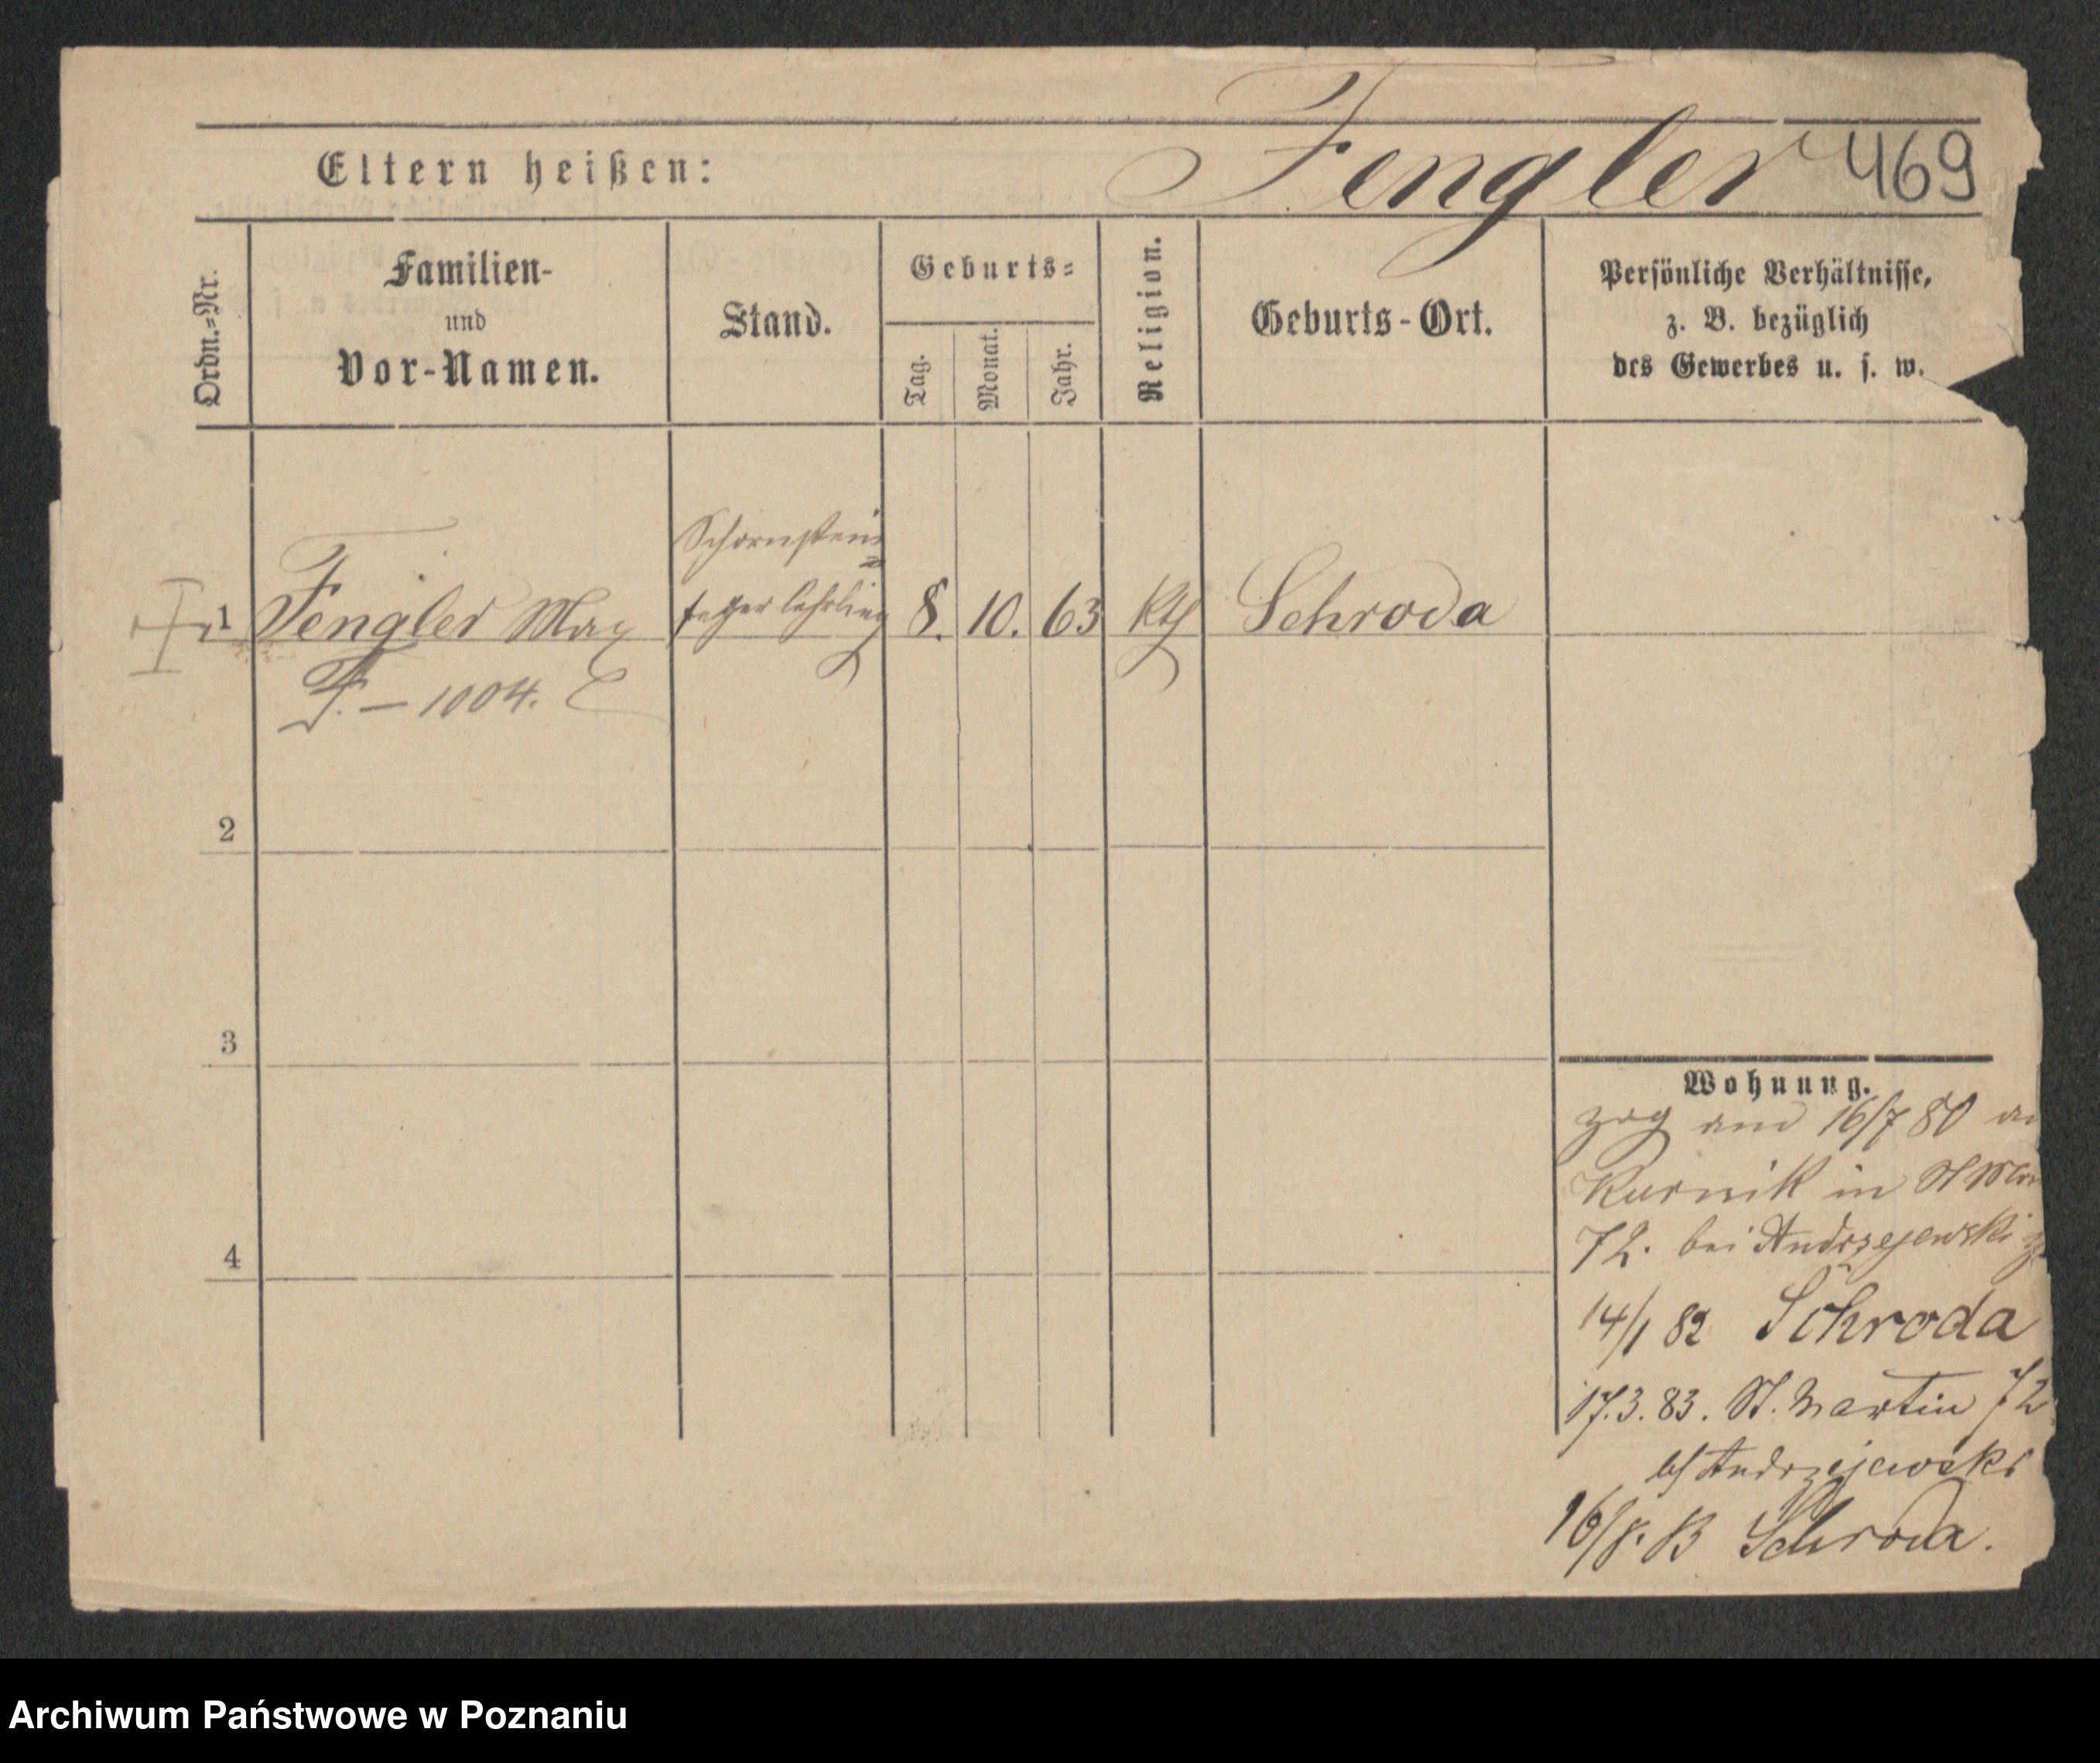 Fengler 469
Eltern heißen:
Ordn.=Nr.
Familien-
und
Vor-Namen.
Stand.
Geburts=
Tag.
Monat.
Jahr.
Religion.
Geburts-Ort.
Persönliche Verhältnisse,
z. B. bezüglich
des Gewerbes u. s. w.
Schornstein=
1 Fengler Max fegerlehrling 8. 10. 63 kth Schroda
F. – 1004.
2
3
4
Wohnung.
zog am 16/7 80
Kurnik in St Mar
72. bei Andrzejewski
14/1 82 Schroda
17.3.83. St. Martin 72
b/ Andrzejewski
16/8. 83 Schroda.
Archiwum Państwowe w Poznaniu